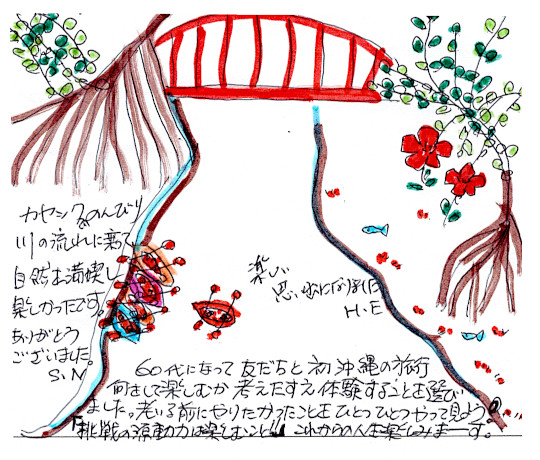 カヤックでのんびり
川の流れに乗って
自然を満喫し
楽しかったです。
ありがとう
ございました。
S.N
楽しい
思い出になりました
H.E
60代になって 友だちと初沖縄の旅行
何をして楽しむか 考えたすえ 体験することを選び
ました。老いる前にやりたかったことを ひとつひとつ やって見よう
挑戦の源動力は楽しむこと!! これからの人生楽しみまーす。